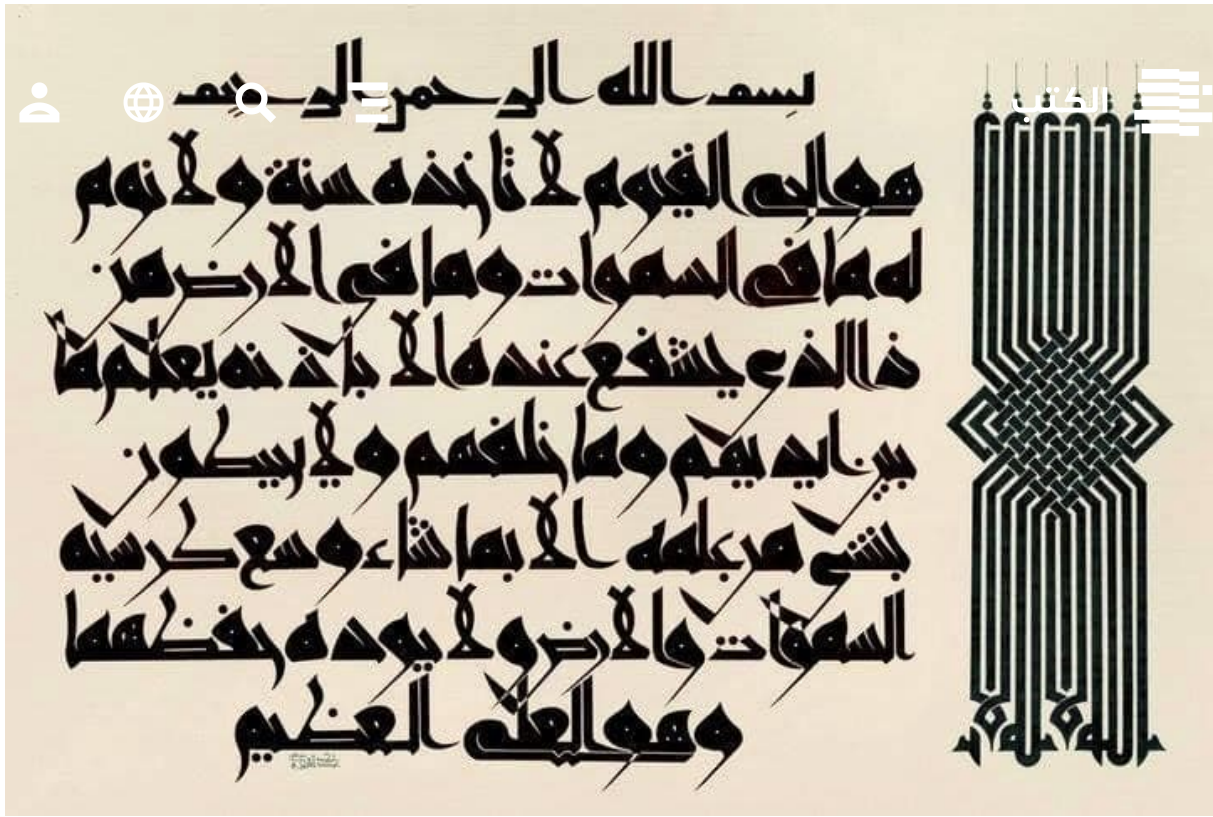 الكتب
بسم الله الرحمن الرحيم
هو الحي القيوم لا تاخذه سنة ولا نوم
له ما في السموات وما في الارض من
ذا الذي يشفع عنده الا باذنه يعلم ما
بين ايديهم وما خلفهم ولا يحيطون
بشي من علمه الا بما شاء وسع كرسيه
السموات والارض ولا يوده حفظهما
وهو العلي العظيم